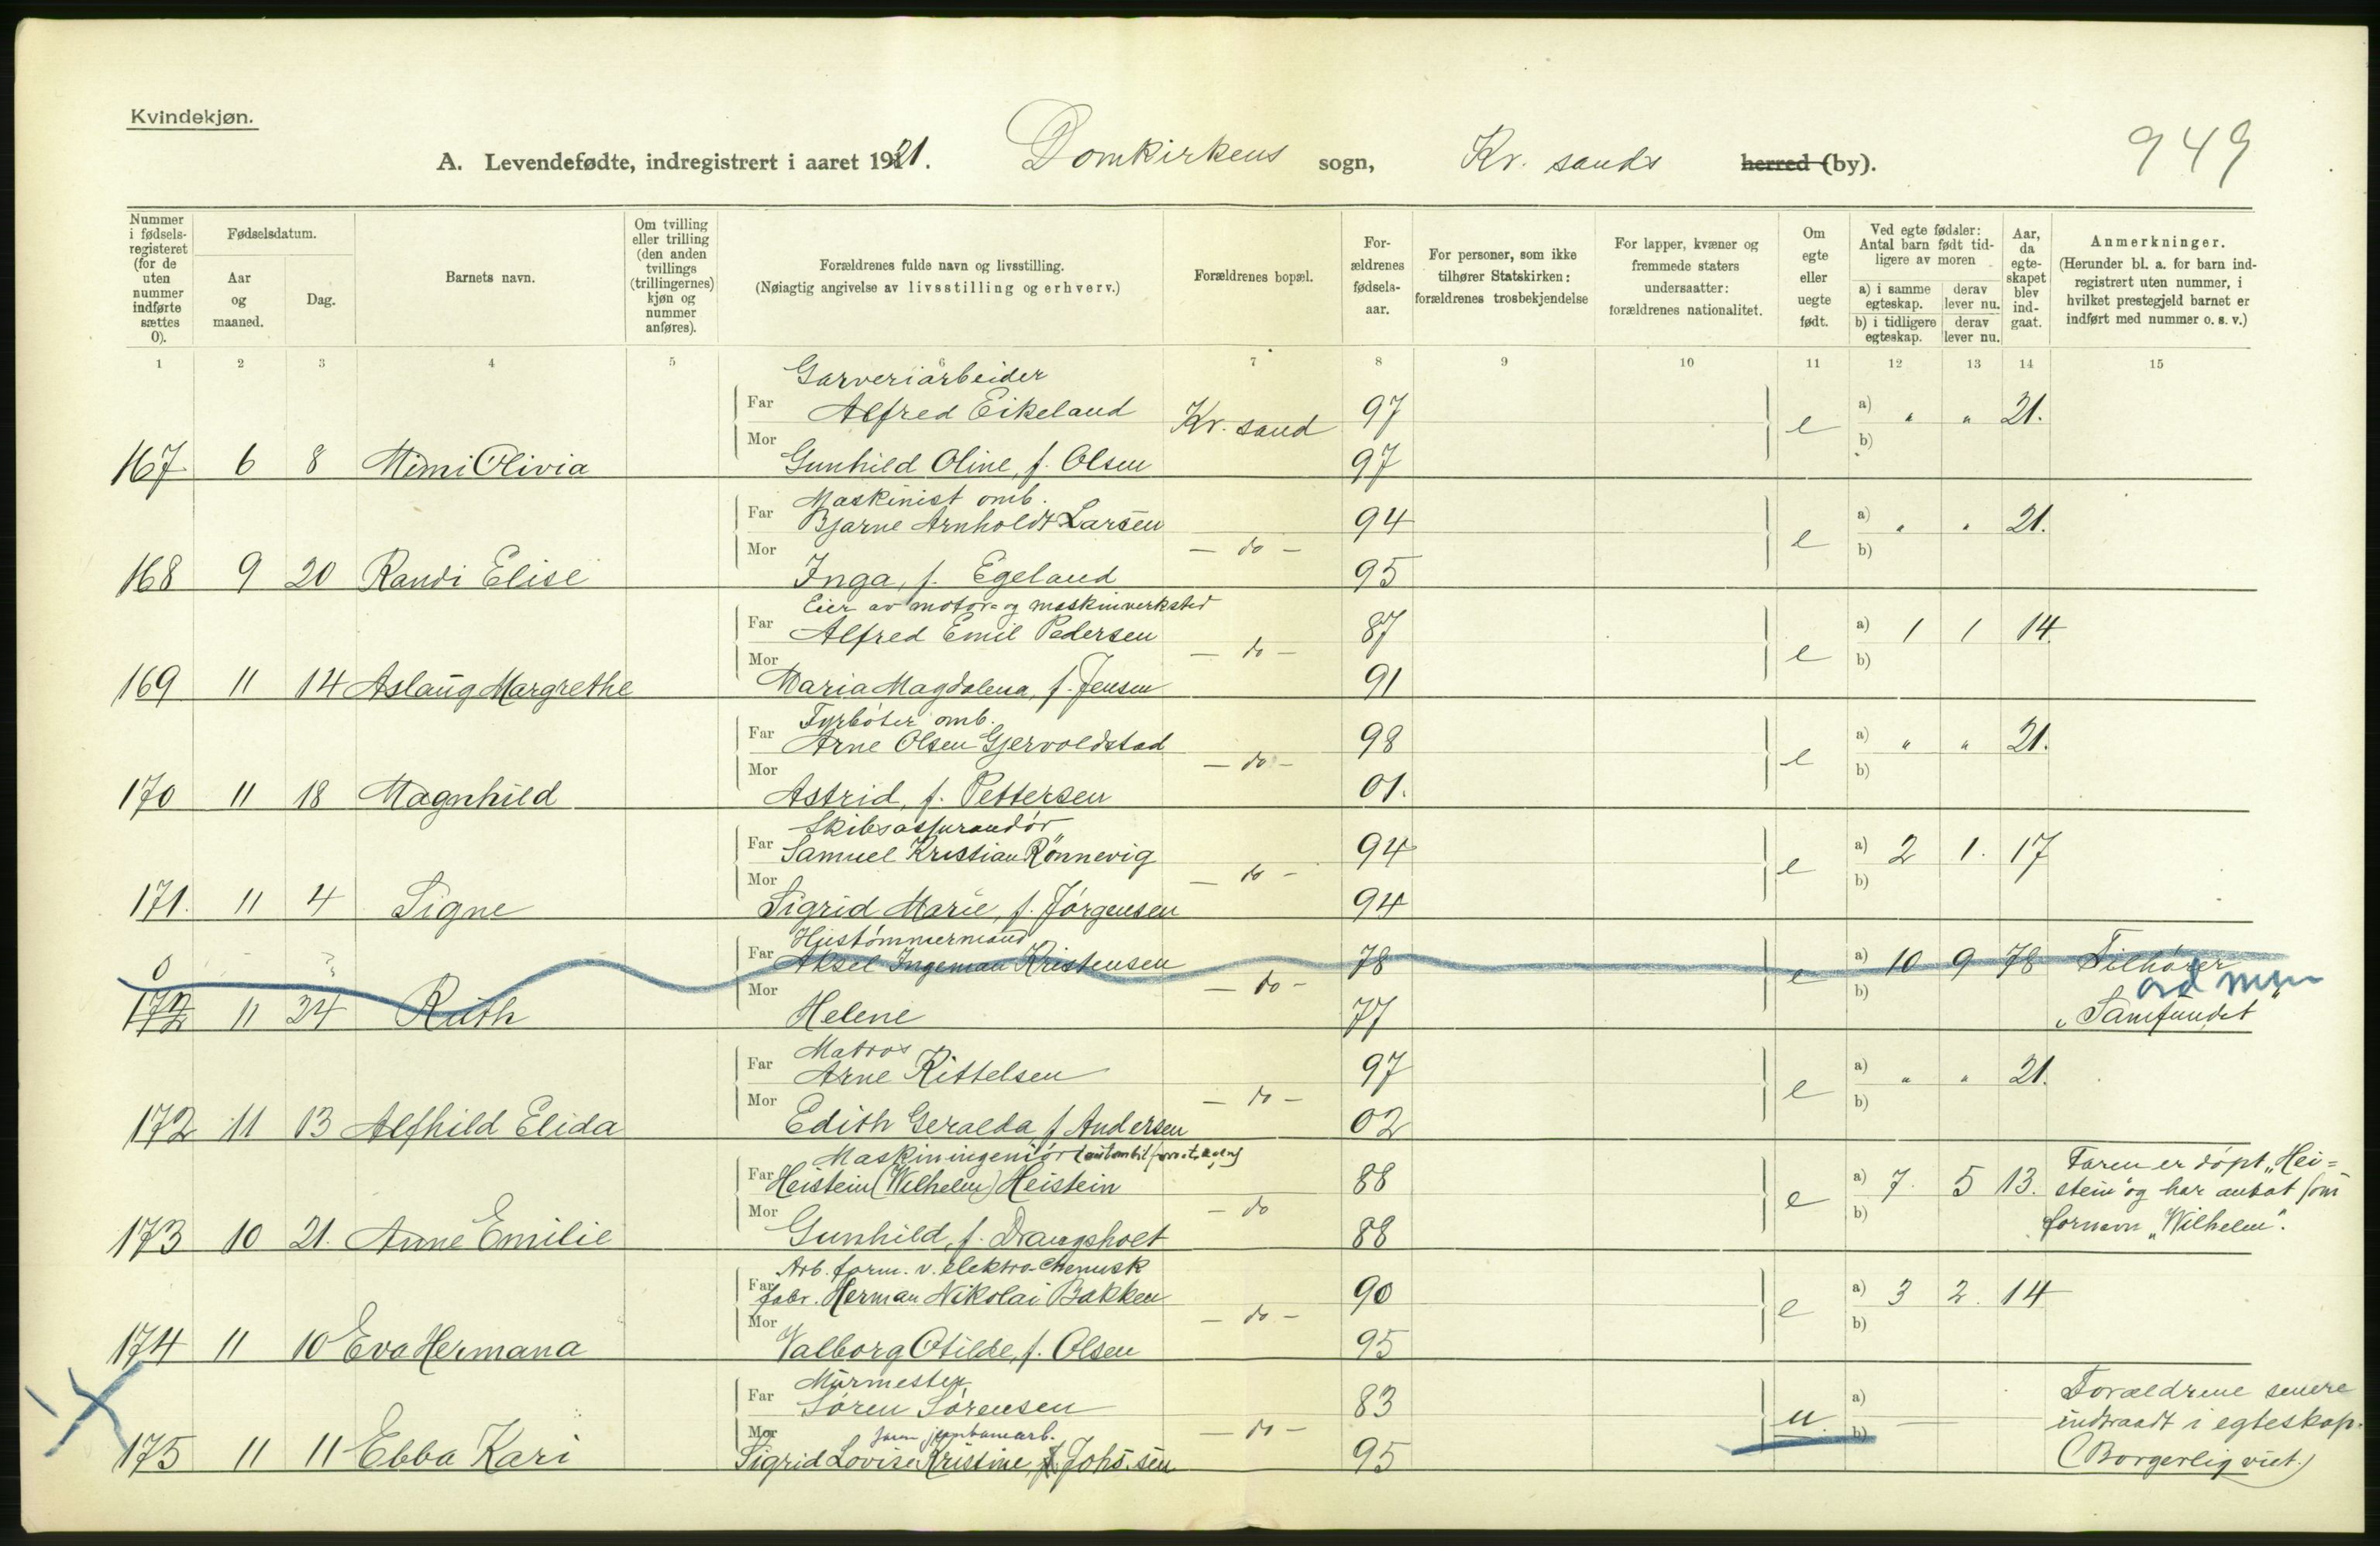 Kvindekjøn.
A. Levendefødte, indregistrert i aaret 1921. Domkirkens sogn, Kr. sands herred (by). 949
Nummer i fødsels-registeret (for de uten nummer indførte sættes 0).
Fødselsdatum.
Aar og maaned.
Dag.
Barnets navn.
Om tvilling eller trilling (den anden tvillings (trillingernes) kjøn og nummer anføres).
Forældrenes fulde navn og livsstilling.
(Nøiagtig angivelse av livsstilling og erhverv.)
Forældrenes bopæl.
For-ældrenes fødsels-aar.
For personer, som ikke tilhører Statskirken: forældrenes trosbekjendelse
For lapper, kvæner og fremmede staters undersaatter: forældrenes nationalitet.
Om egte eller uegte født.
Ved egte fødsler: Antal barn født tid-ligere av moren
a) i samme egteskap.
derav lever nu.
b) i tidligere egteskap.
derav lever nu.
Aar, da egte-skapet blev ind-gaat.
Anmerkninger.
(Herunder bl. a. for barn ind-registrert uten nummer, i hvilket prestegjeld barnet er indført med nummer o. s. v.)
1 2 3 4 5 6 7 8 9 10 11 12 13 14 15
Garveriarbeider
Far Alfred Eikeland Kr. sand 97 e a) " " 21.
Mor b)
167 6 8 Mimi Olivia Gunhild Oline, f. Olsen 97
Maskinist omb.
Far Bjarne Arnholdt Larsen 94 a) " " 21.
Mor — do — e b)
168 9 20 Randi Elise Inga, f. Egeland 95
Eier av motor- og maskinverksted
Far Alfred Emil Pedersen 87 a) 1 1 14
Mor — do — e b)
169 11 14 Aslaug Margrethe Maria Magdalena, f. Jensen 91
Fyrbøter omb.
Far Arne Olsen Gjervoldstad 98 a) " " 21.
Mor — do — e b)
170 11 18 Magnhild Astrid, f. Pettersen 01.
Skibsassurandør
Far Samuel Kristian Rönnevig 94 a) 2 1. 17
Mor — do — e b)
171. 11 4 Signe Sigrid Marie, f. Jørgensen 94
Hustømmermand
0 Far Aksel Ingeman Kristensen 78 e a) 10 9 78 Tilhører
Mor — do — b)
172 11 24 Ruth Helene 77 "Samfundet"
Matros
Far Arne Kittelsen 97 a) " " 21.
Mor — do — e b)
172 11 13 Alfhild Elida Edith Geralda f Andersen 02
Maskiningeniør Faren er døpt „Hei=
Far Heistein (Wilhelm) Heistein 88 a) 7. 5 13. stein" og har antat som
Mor — do e b) fornavn „Wilhelm".
173 10 21. Anne Emilie Gunhild, f. Drangsholt 88
Arb. form. v. elektro-Chemisk
Far fabr. Herman Nikolai Bakken 90 a) 3 2. 14
Mor — do — e b)
174 11 10 Eva Hermana Valborg Otilde, f. Olsen 95
Murmester Forældrene senere
Far Søren Sørensen 83 a) indtraadt i egteskap.
Mor — do — u. b) — (Borgerlig viet.)
175 11 11 Ebba Kari Sigrid Lovise Kristine, f. Johs.sen 95